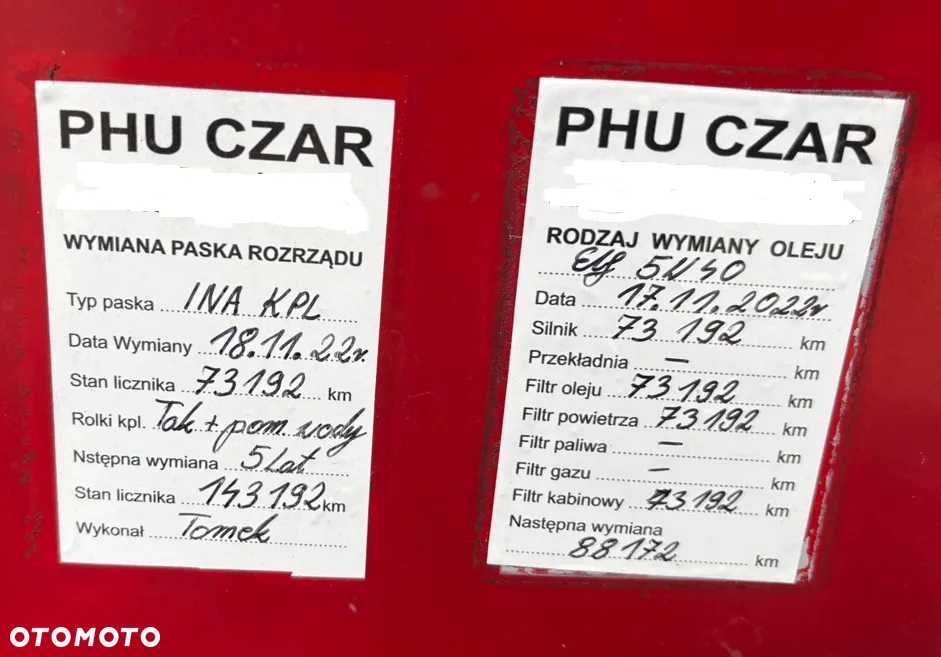 PHU CZAR
WYMIANA PASKA ROZRZĄDU
Typ paska INA KPL
Data Wymiany 18.11.22r.
Stan licznika 73192 km
Rolki kpl. Tak + pom. wody
Nstępna wymiana 5 Lat
Stan licznika 143192 km
Wykonał Tomek
PHU CZAR
RODZAJ WYMIANY OLEJU
Elf 5W40
Data 17.11.2022r
Silnik 73 192 km
Przekładnia — km
Filtr oleju 73192 km
Filtr powietrza 73192 km
Filtr paliwa — km
Filtr gazu — km
Filtr kabinowy 73192 km
Następna wymiana
88172 km
OTOMOTO